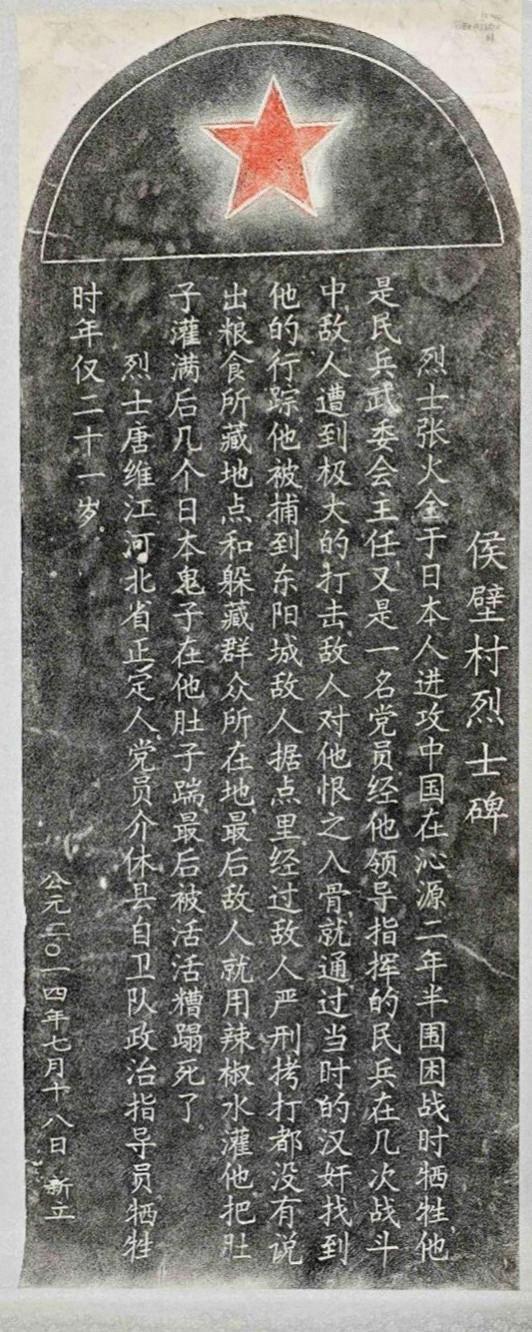 侯壁村烈士碑
烈士张火全于日本人进攻中国在沁源二年半围困战时牺牲,他
是民兵武委会主任又是一名党员经他领导指挥的民兵在几次战斗
中敌人遭到极大的打击敌人对他恨之入骨就通过当时的汉奸找到
他的行踪他被捕到东阳城敌人据点里经过敌人严刑拷打都没有说
出粮食所藏地点和躲藏群众所在地最后敌人就用辣椒水灌他把肚
子灌满后几个日本鬼子在他肚子踹最后被活活糟蹋死了.
烈士唐维江河北省正定人党员介休县自卫队政治指导员牺牲
时年仅二十一岁.
公元二〇一四年七月十八日 新立